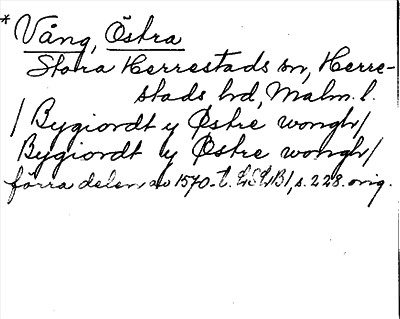 * Vång, Östra
Stora Herrestads sn, Herre-
stads hd, Malm. l.
/ Bygiordt y Østre wongh/
Bygiordt y Østre wongh/
förra delen av 1570-t. LSLB1, s. 228. orig.